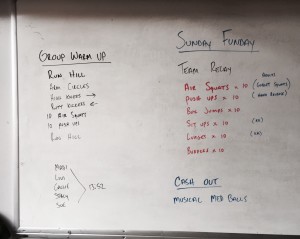 GROUP WARM UP
RUN HILL
ARM CIRCLES
HIGH KNEES →
BUTT KICKERS ←
10 AIR SQUATS
10 PUSH UPS
RUN HILL
13:52
SUNDAY FUNDAY
TEAM RELAY
AIR SQUATS x 10 (JUMP SQUATS)
PUSH UPS x 10 (HAND RELEASE)
BOX JUMPS x 10
SIT UPS x 10
LUNGES x 10
BURPEES x 10
CASH OUT
MUSICAL MED BALLS